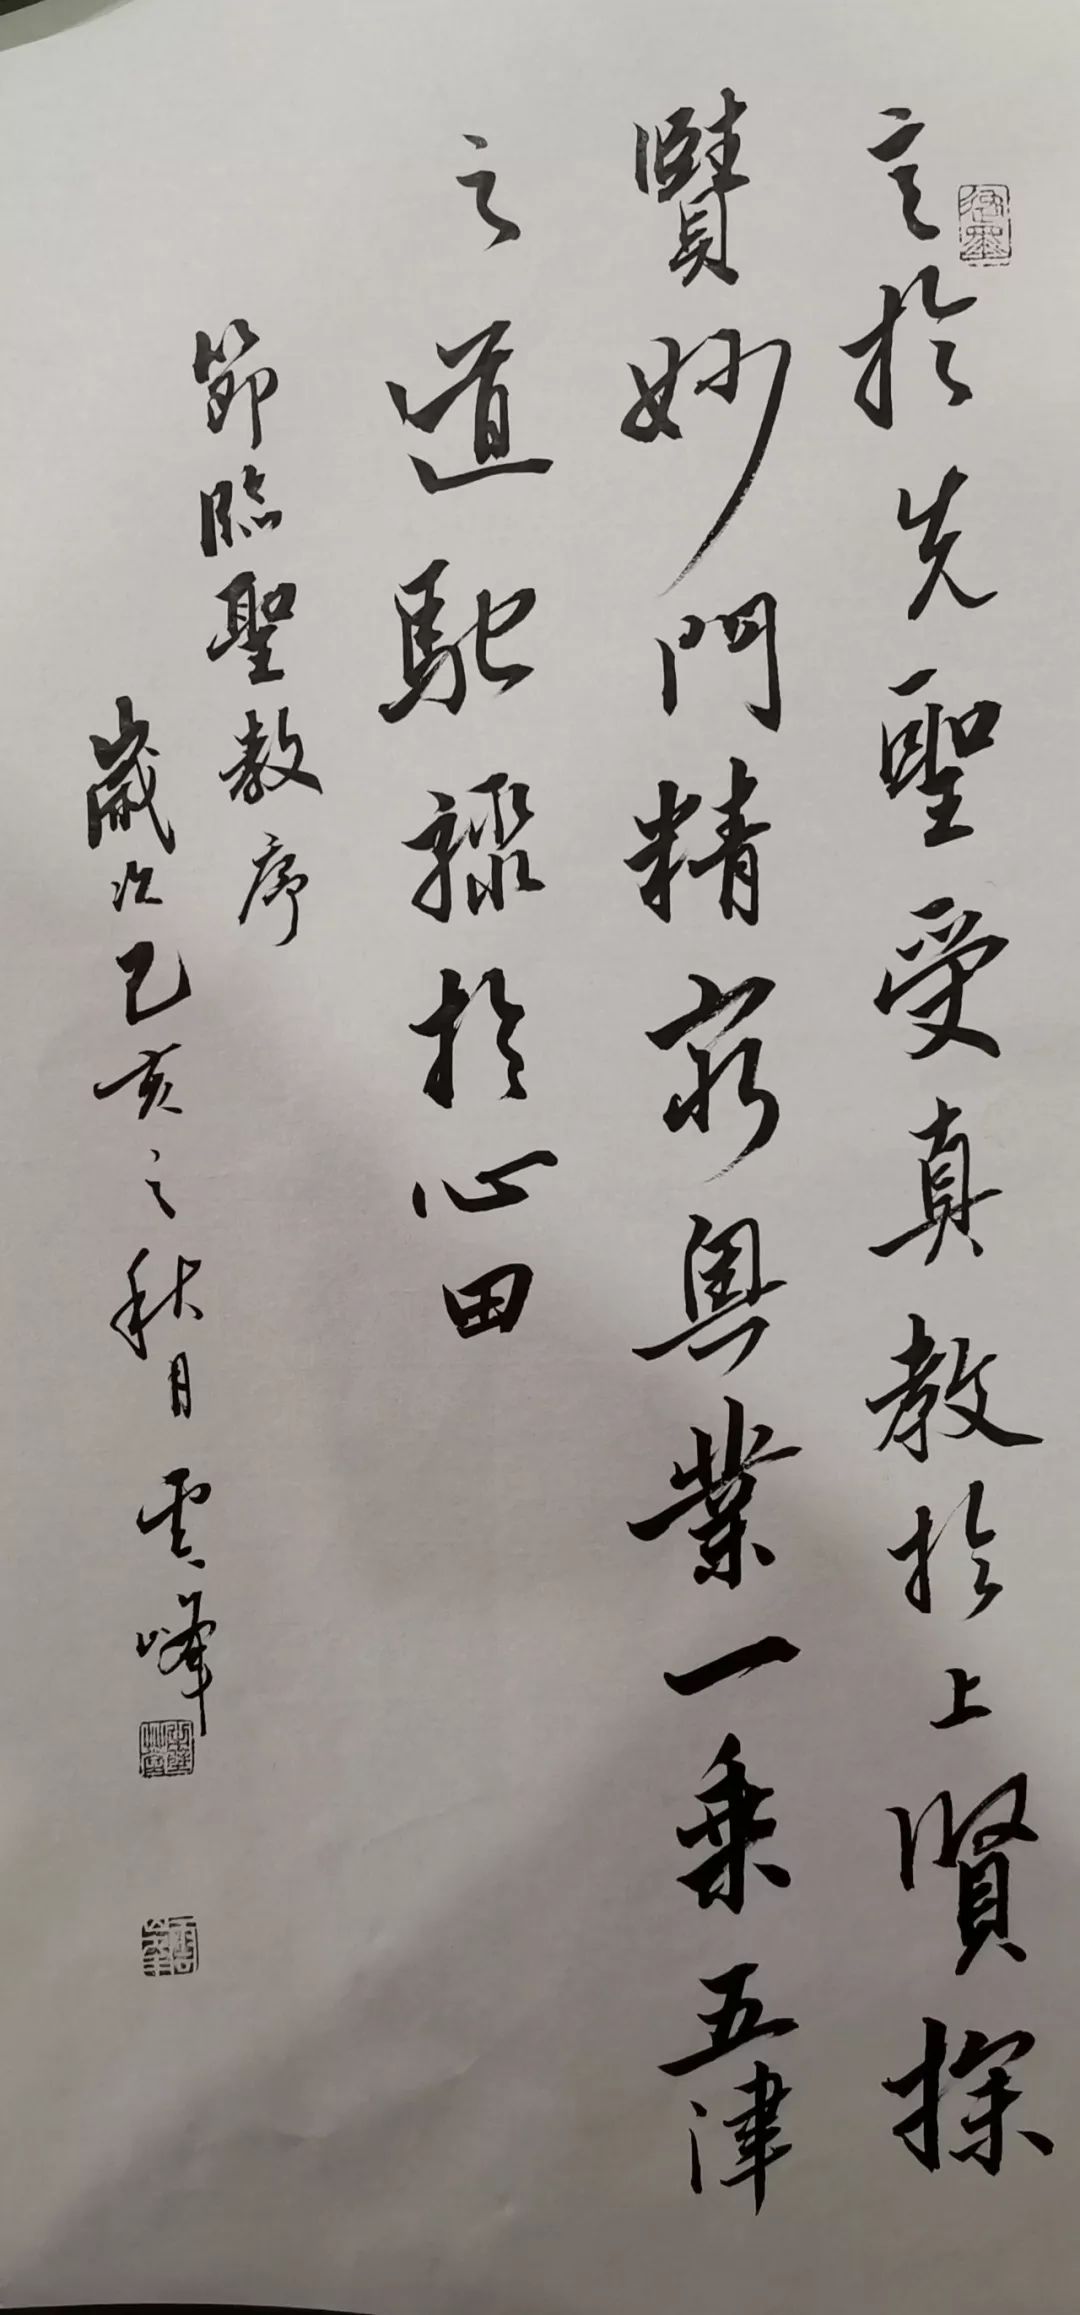 言於先聖受真教於上賢探
賾妙門精窮奧業一乘五律
之道馳驟於心田
節臨聖教序
歲次己亥之秋月雲峰